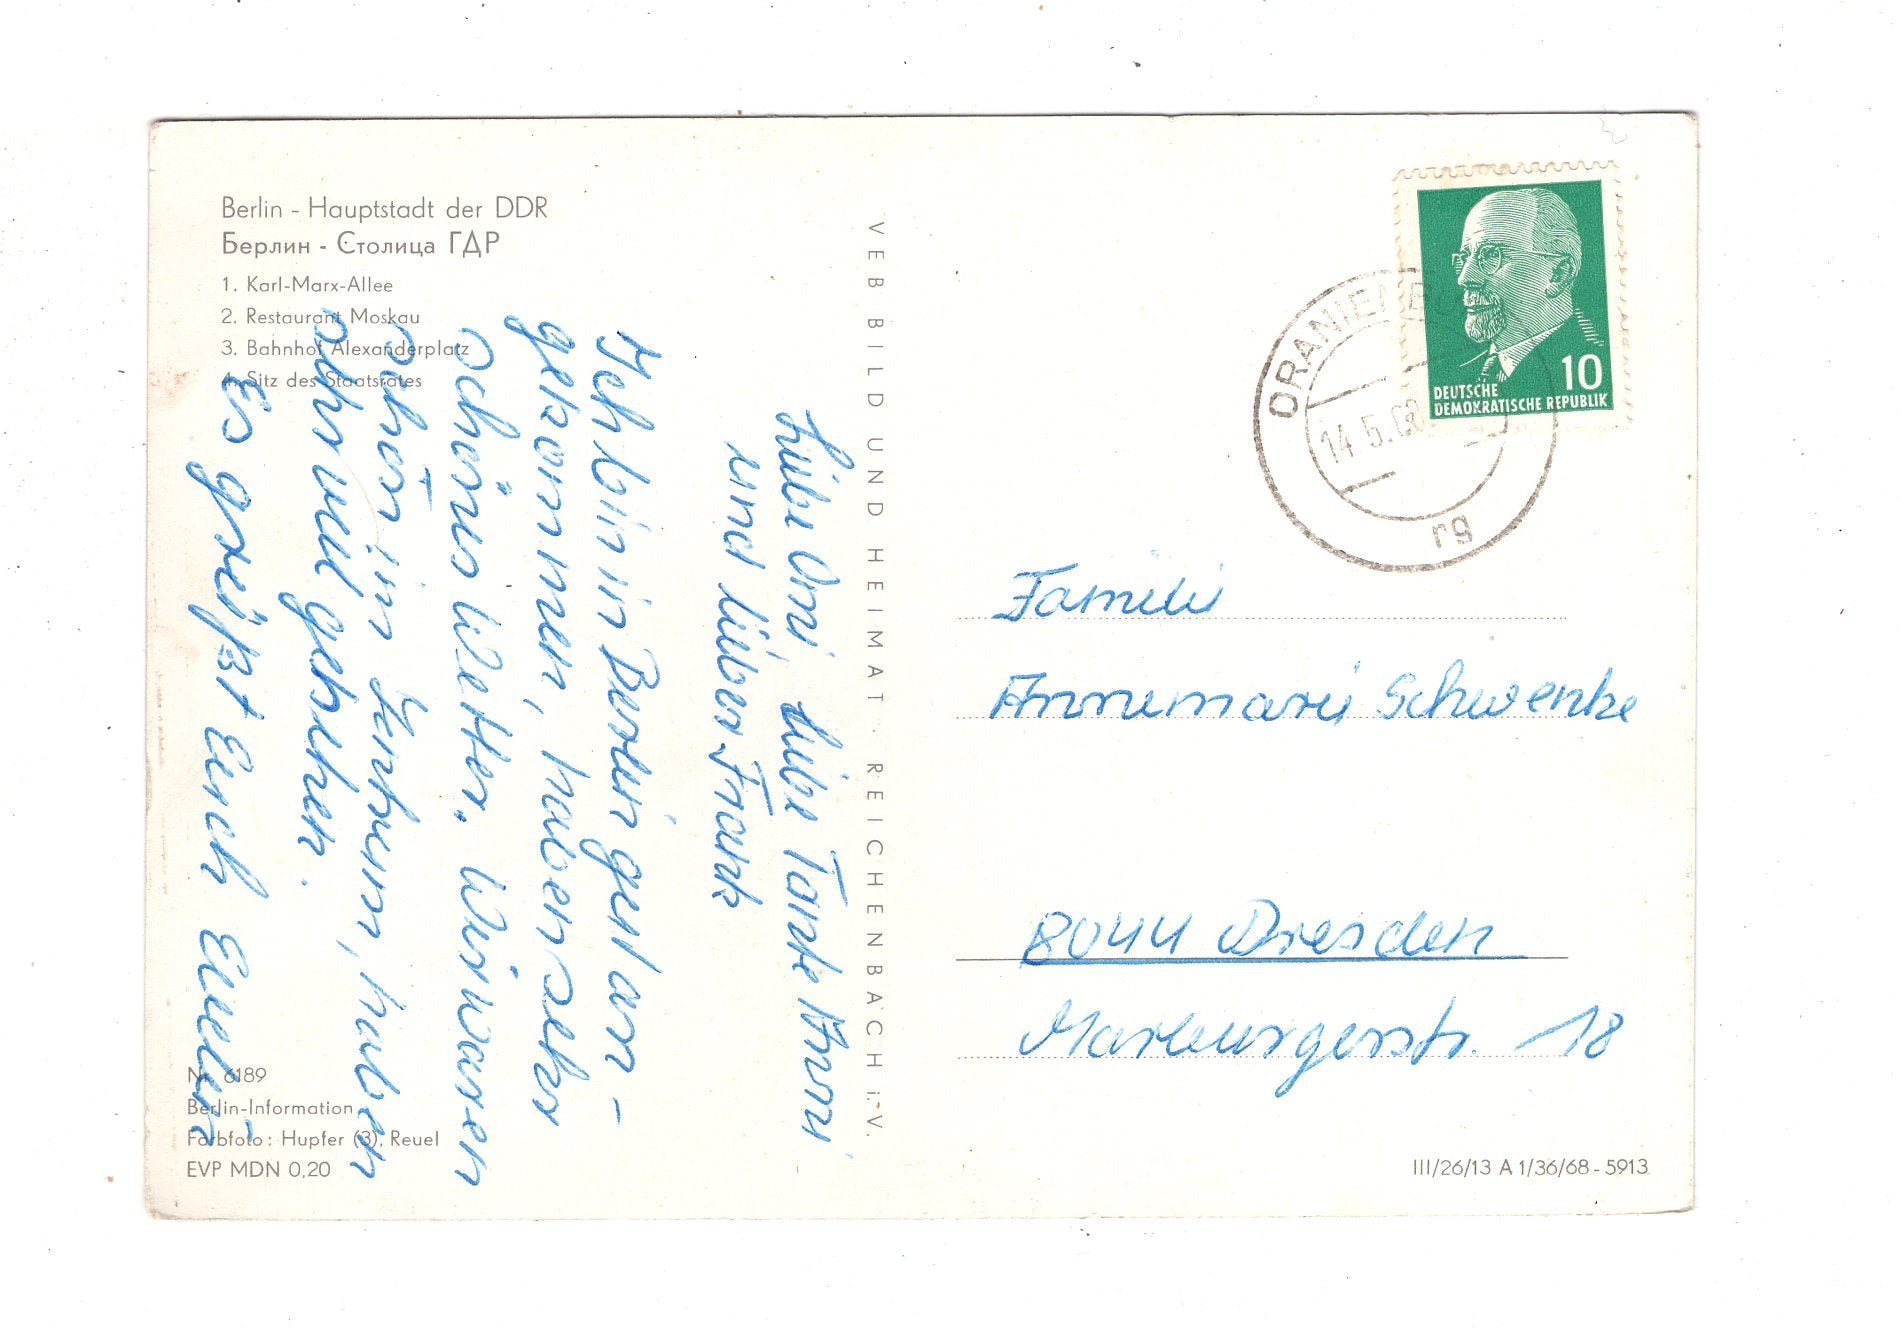 Berlin - Hauptstadt der DDR
Берлин - Столица ГДР
1. Karl-Marx-Allee
2. Restaurant Moskau
3. Bahnhof Alexanderplatz
4. Sitz des Staatsrates
Liebe Omi, Liebe Tante Anni
und lieber Frank
Ich bin in Berlin gut an-
gekommen, haben sehr
schönes Wetter. Wir waren
schon im Zentrum, haben
sehr viel gesehen.
Es grüßt Euch
Nr. 6189
Berlin-Information
Farbfoto: Hupfer (3), Reuel
EVP MDN 0,20
VEB BILD UND HEIMAT · REICHENBACH i. V.
DEUTSCHE
DEMOKRATISCHE REPUBLIK
10
14.5.68
rg
Familie
Annemarie Schwenke
8044 Dresden
Marburgerstr. 18
III/26/13 A 1/36/68 - 5913